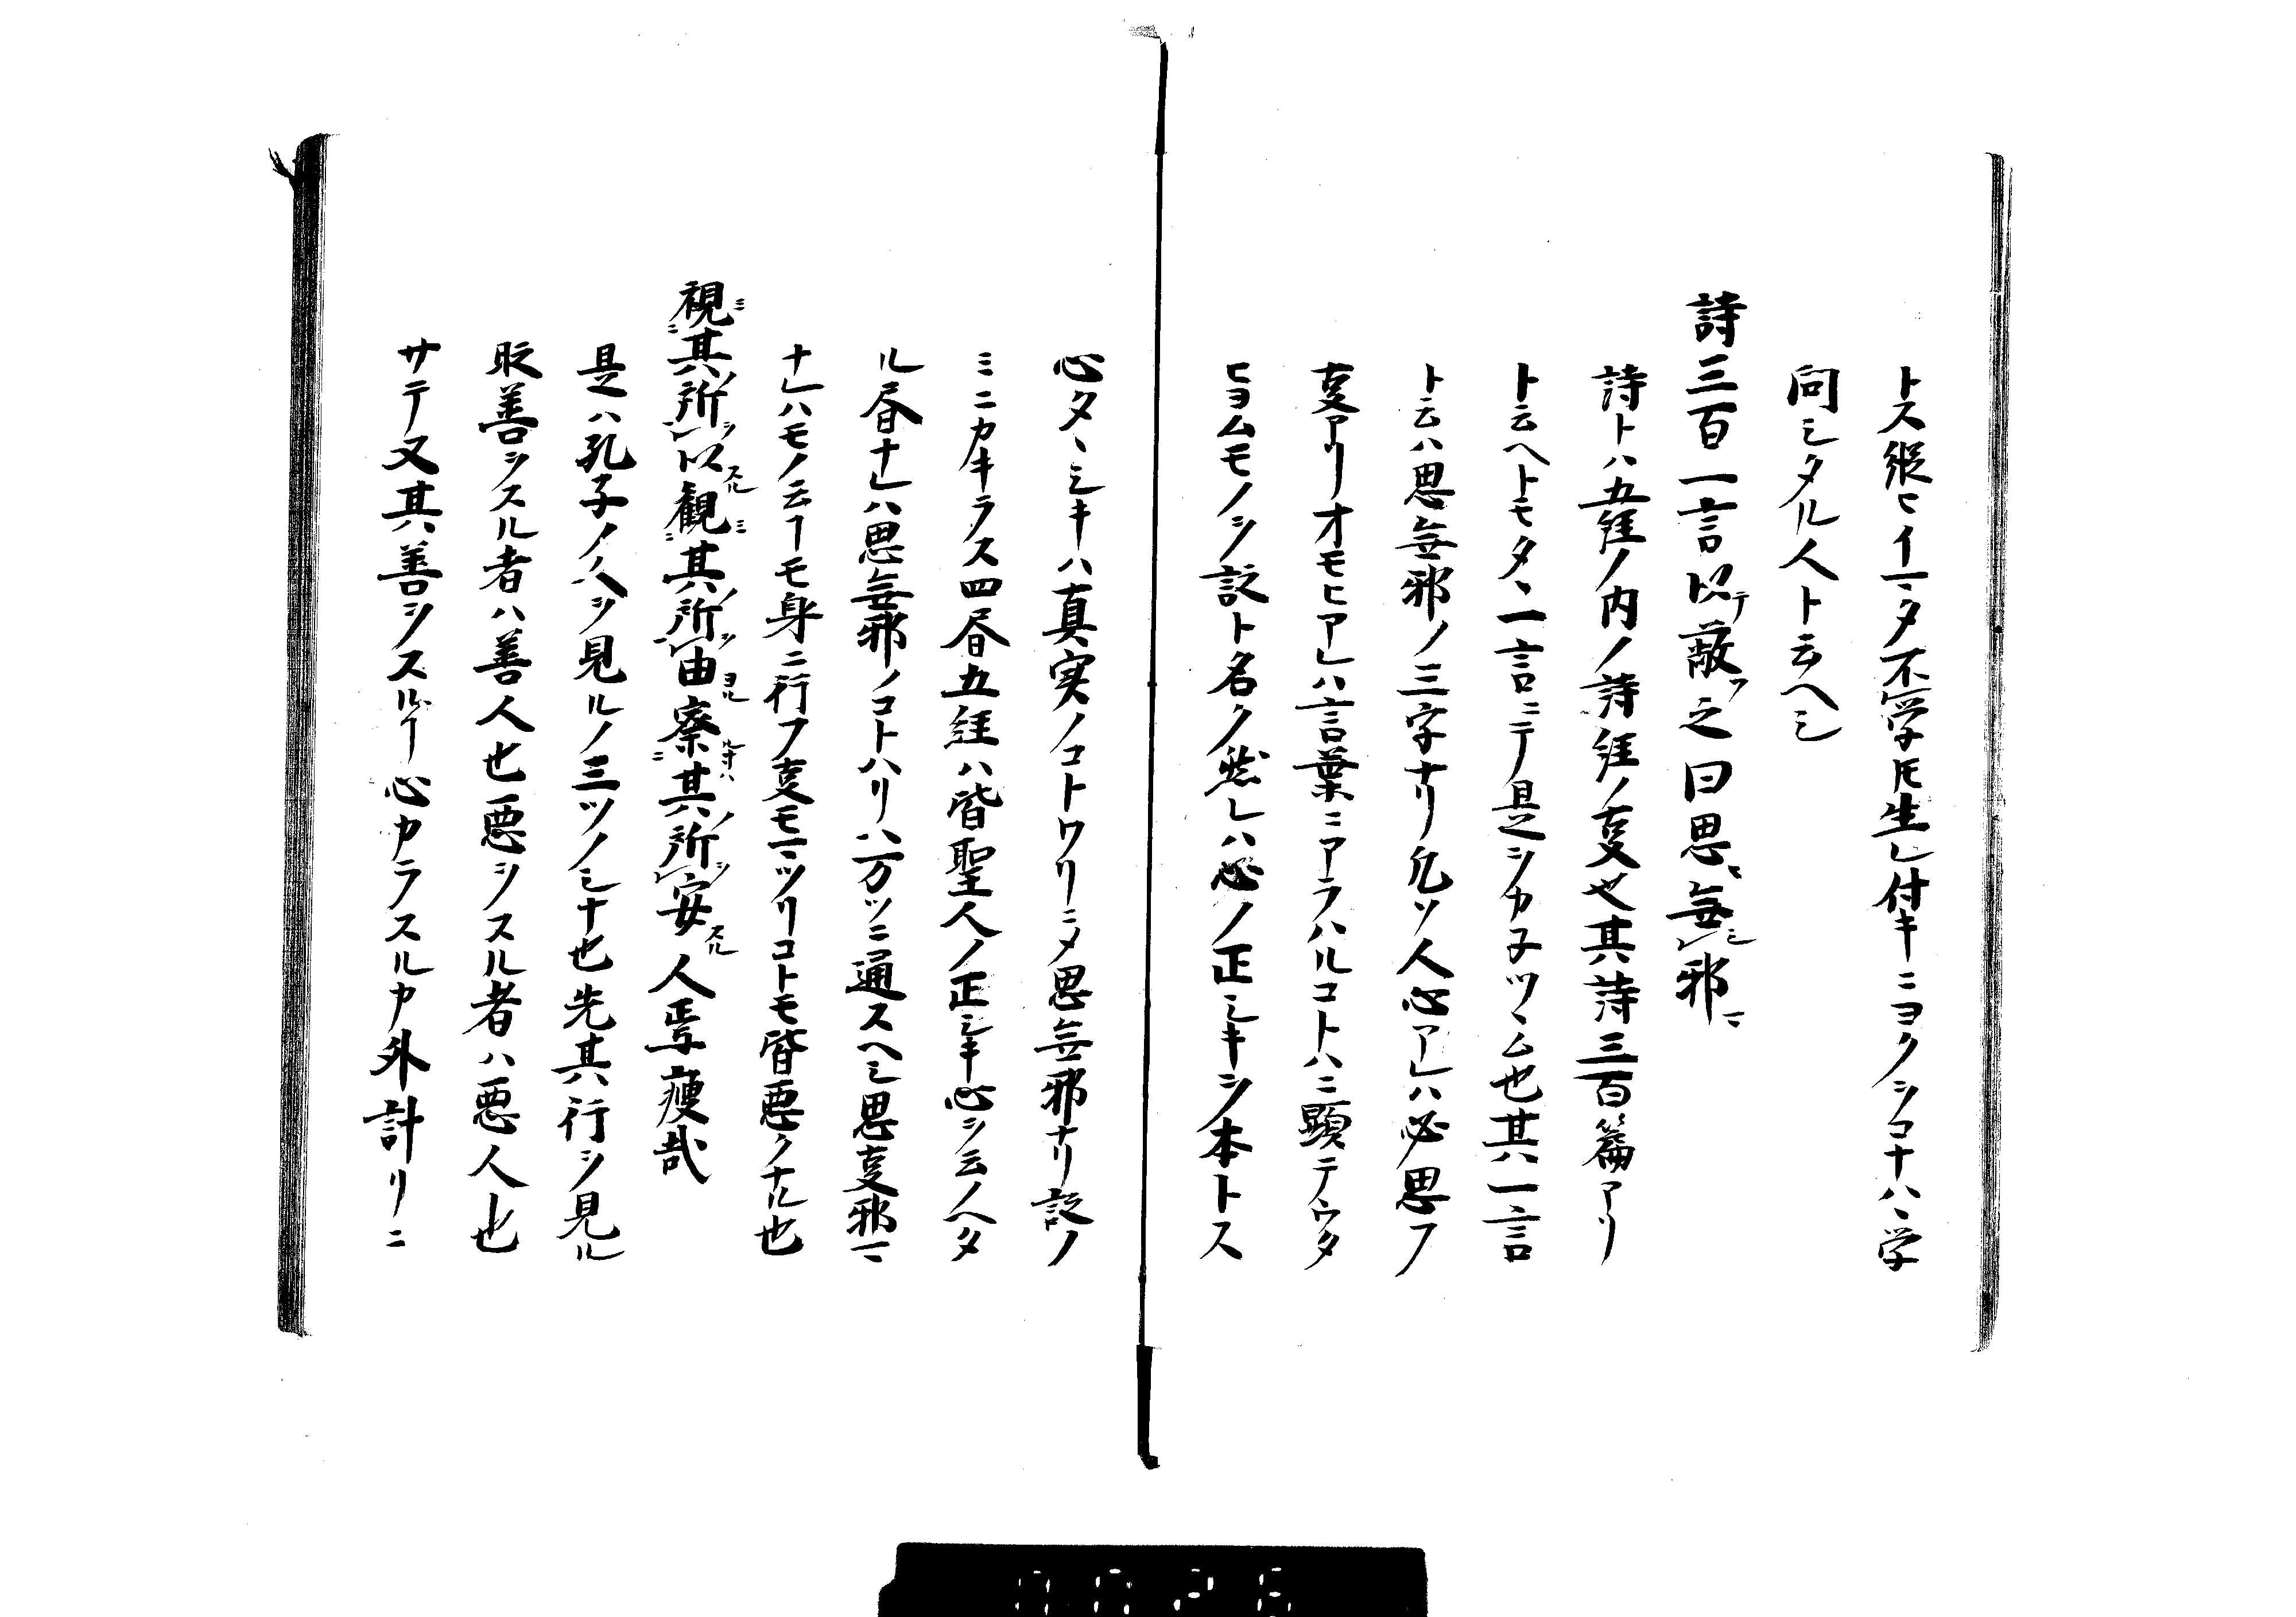 トス縦ヒイマタ不学𪜈生レ付キニヨクヲコナハヽ学
問シタル人ト云ヘシ
詩三百一言以テ蔽フ之曰思ヒ無シ邪マ
詩トハ五経ノ内ノ詩経ノ事也其詩三百篇アリ
ト云ヘトモタヽ一言ニテ是ヲカネツヽム也其一言
ト云ハ思無邪ノ三字ナリ凡ソ人心アレハ必思フ
事アリオモヒアレハ言葉ニアラハルコトハニ顕テウタ
ヒヨムモノヲ詩ト名ク然レハ心ノ正シキヲ本トス
心タヽシキハ真実ノコトワリニメ思無邪ナリ詩ノ
ミニカキラス四書五経ハ皆聖人ノ正シキ心ヲ云ノヘタ
ル書ナレハ思無邪ノコトハリハ万ツニ通スヘシ思事邪マ
ナレハモノ云フヿモ身ニ行フ事モマツリコトモ皆悪クナル也
視ミ其ノ所ヲ以スル観ミ其ノ所ヲ由ヨル察ルトキハ其ノ所ヲ安スル人焉廋哉
是ハ孔子ノ人ヲ見ルノ三ツノミチ也先其行ヲ見ル
取善ヲスル者ハ善人也悪ヲスル者ハ悪人也
サテ又其善ヲスルヿ心カラスルカ外計リニ